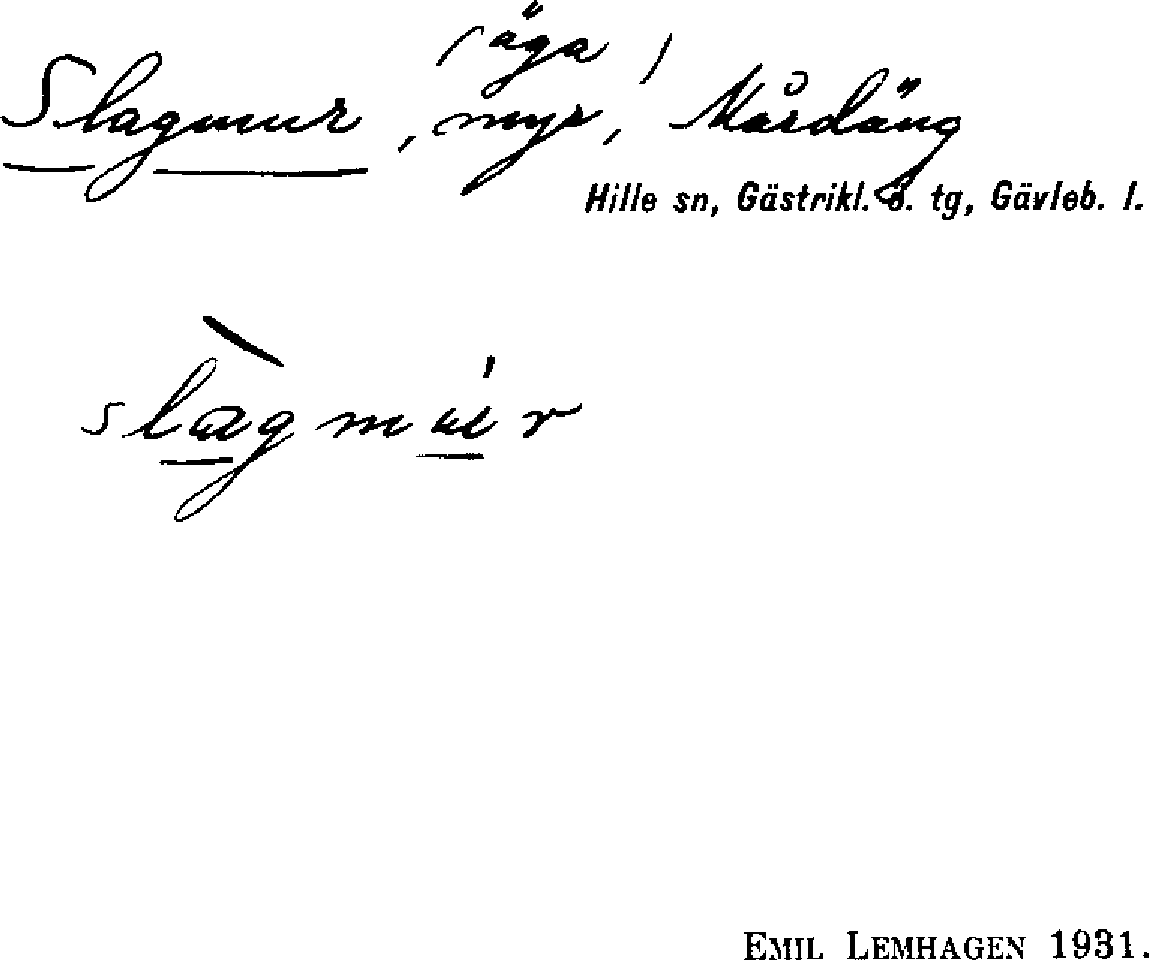 (äga)
Slagmur, myr, Mårdäng
Hille sn, Gästrikl. ö. tg, Gävleb. l.
slàgmúr
EMIL LEMHAGEN 1931.